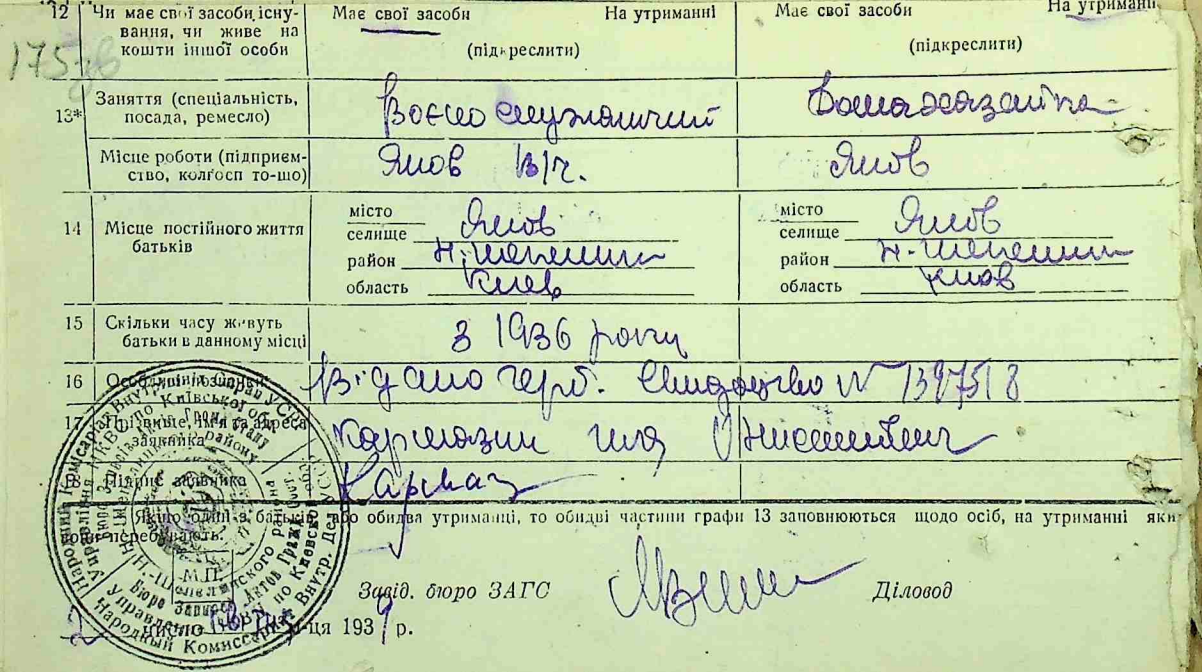 12 Чи має свої засоби існування, чи живе на кошти іншої особи
Має свої засоби На утриманні
(підкреслити)
Має свої засоби На утриманні
(підкреслити)
175зв
13* Заняття (спеціальність, посада, ремесло)
Воєнослужащий
Домохазайка
Місце роботи (підприємство, колгосп то-що)
в/ч.
14 Місце постійного життя батьків
місто
селище
район Н.-Шепелич
область Киев
місто
селище
район Н.-Шепелич
область Киов
15 Скільки часу живуть батьки в данному місці
З 1936 року
16 Особливі позначки
Видано герб. Свидоцтво № 1397518
17 Прізвище, ім'я та адреса заявника
Кармазин
18 Підпис заявника
Кармаз
Якщо один з батьків або обидва утриманці, то обидві частини графи 13 заповнюються щодо осіб, на утриманні яких вони перебувають.
М.П.
Завід. бюро ЗАГС
Діловод
2 число м-ця 1939 р.
Народний Комісаріат Внутрішніх Справ УСРР
Управління НКВС по Київської обл.
Народный Комиссариат Внутр. Дел УССР